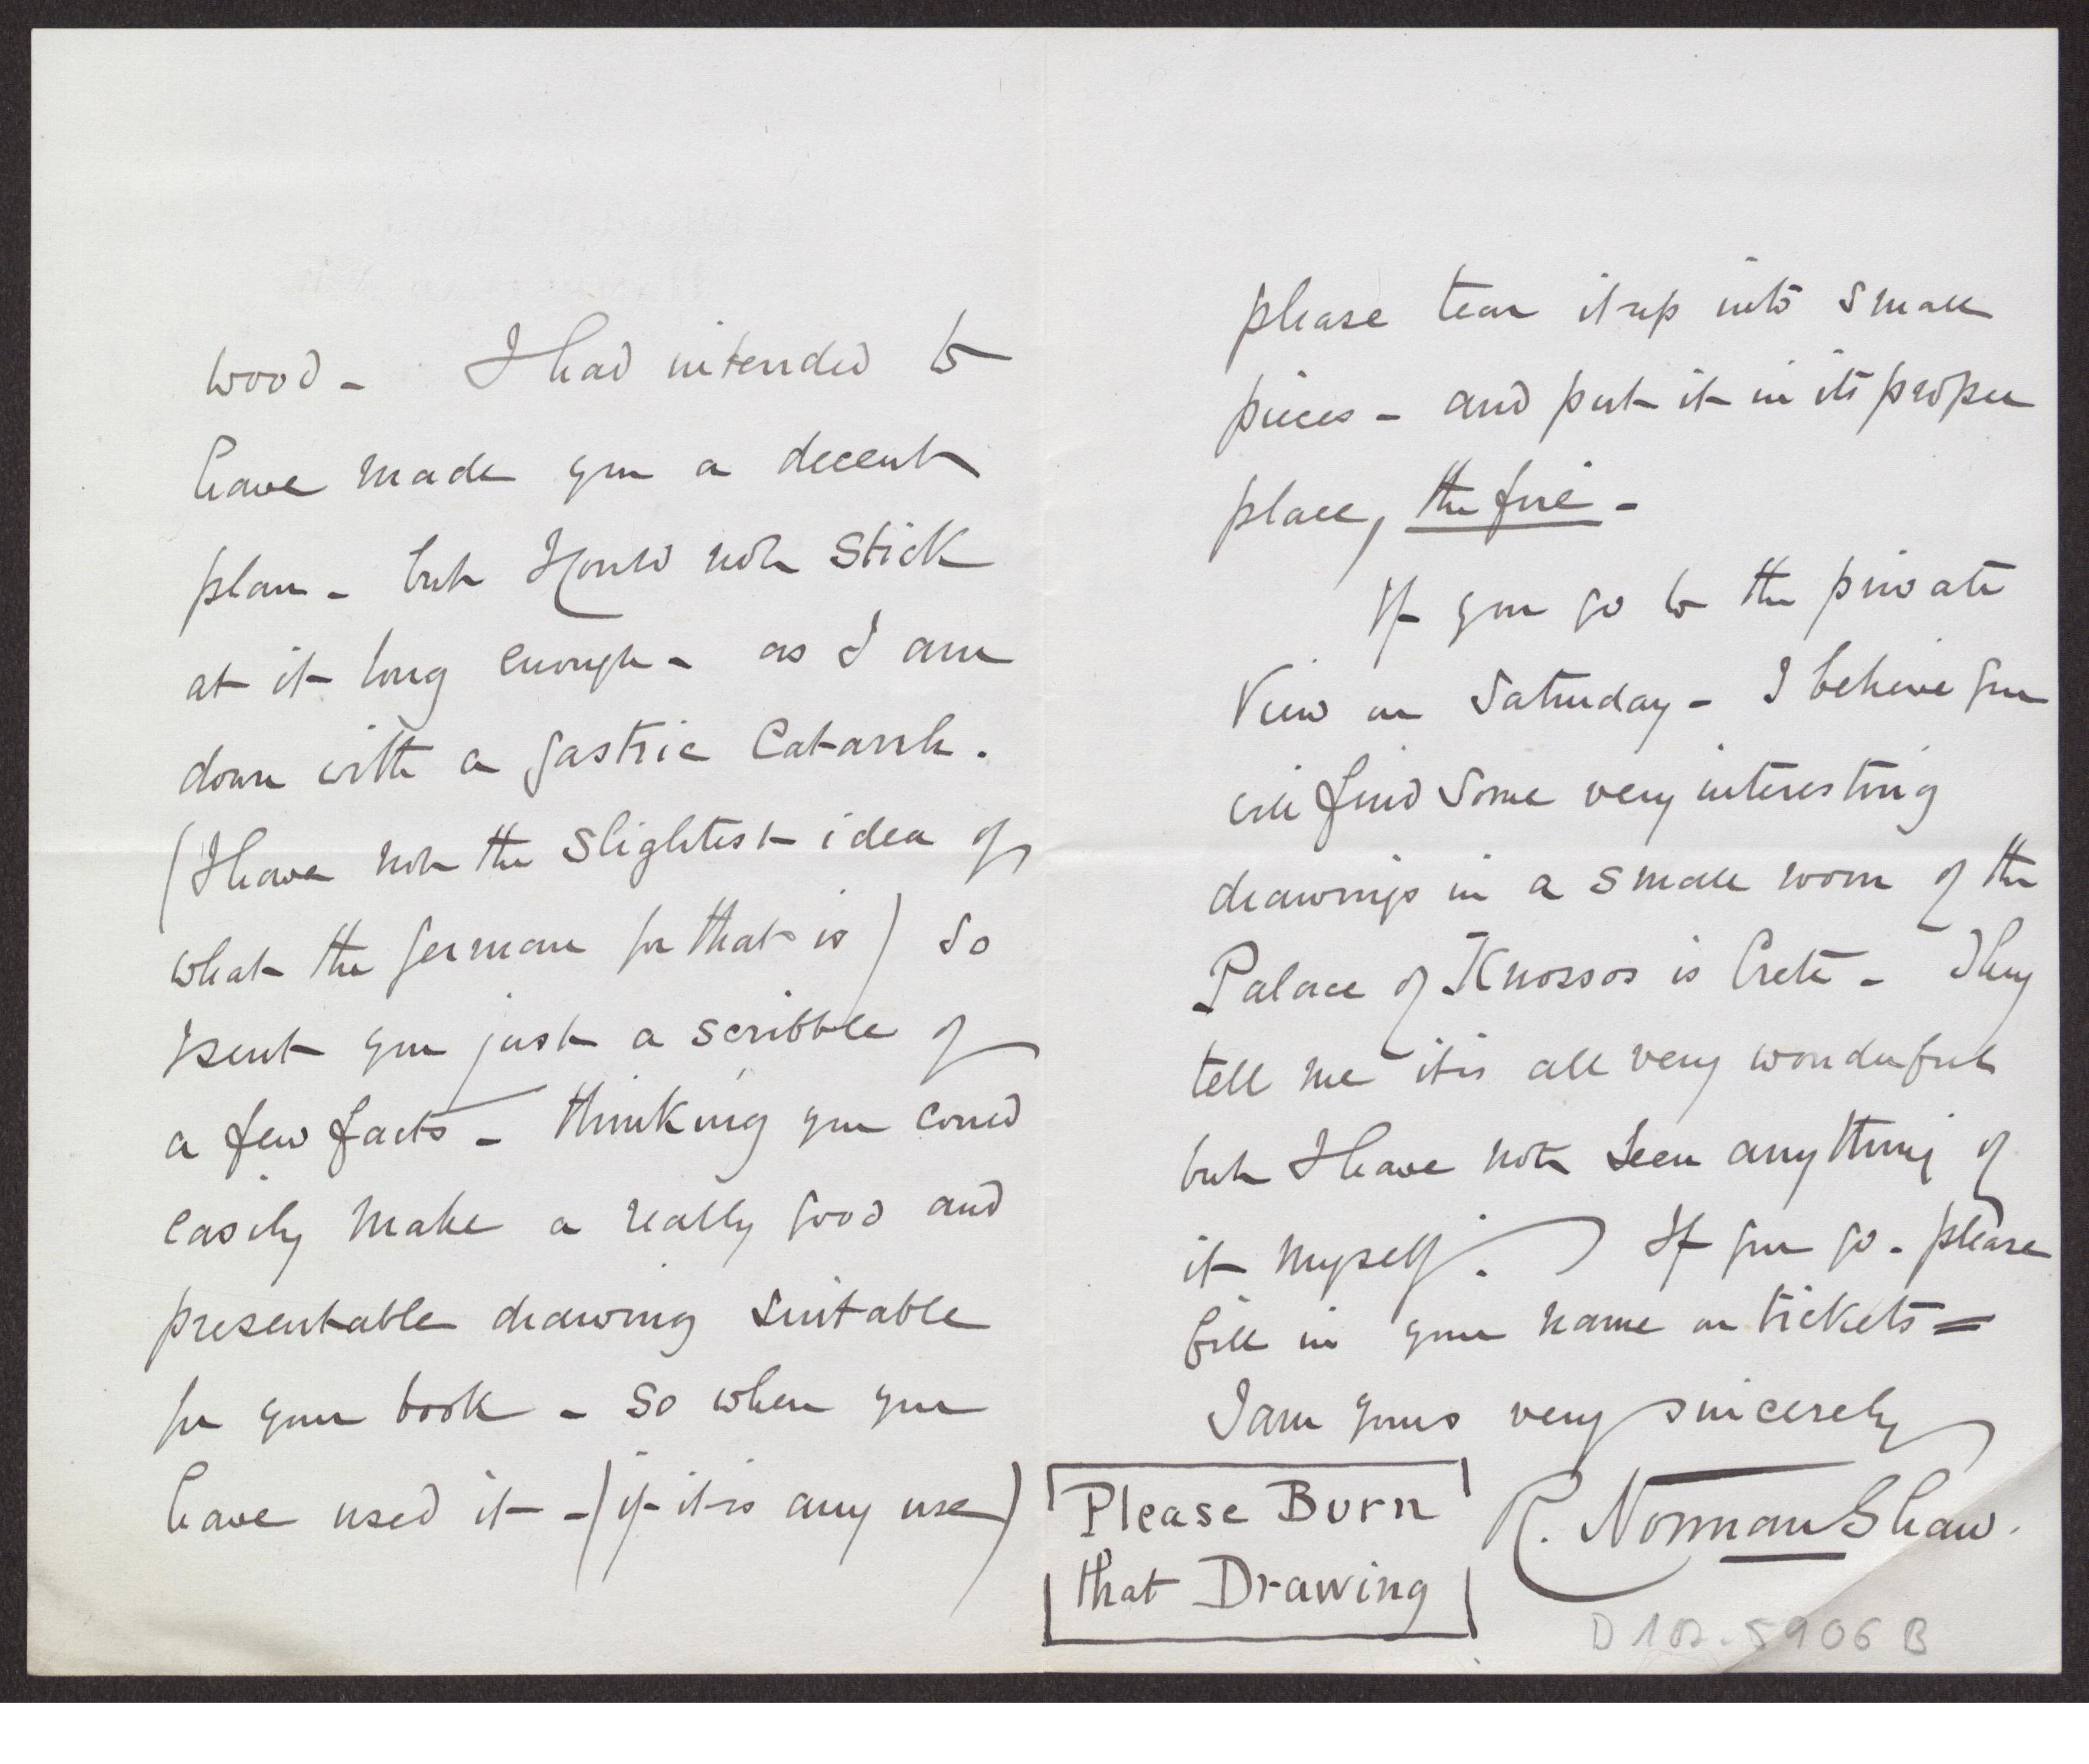 wood - I had intended to
have made you a decent
plan - but I could not stick
at it long enough - as I am
down with a gastric Catarrh.
(I have not the slightest idea of
what the German for that is) So
I sent you just a scribble of
a few facts - thinking you could
easily make a really good and
presentable drawing suitable
for your book - So when you
have used it - (if it is any use)
please tear it up into small
pieces - and put it in its proper
place, the fire -
If you go to the private
View on Saturday - I believe you
will find some very interesting
drawings in a small room of the
Palace of Knossos is Crete - They
tell me it is all very wonderful
but I have not seen anything of
it myself. If you go - please
fill in your name on tickets =
I am yours very sincerely
R. Norman Shaw.
Please Burn
that Drawing
D 102.5906 B